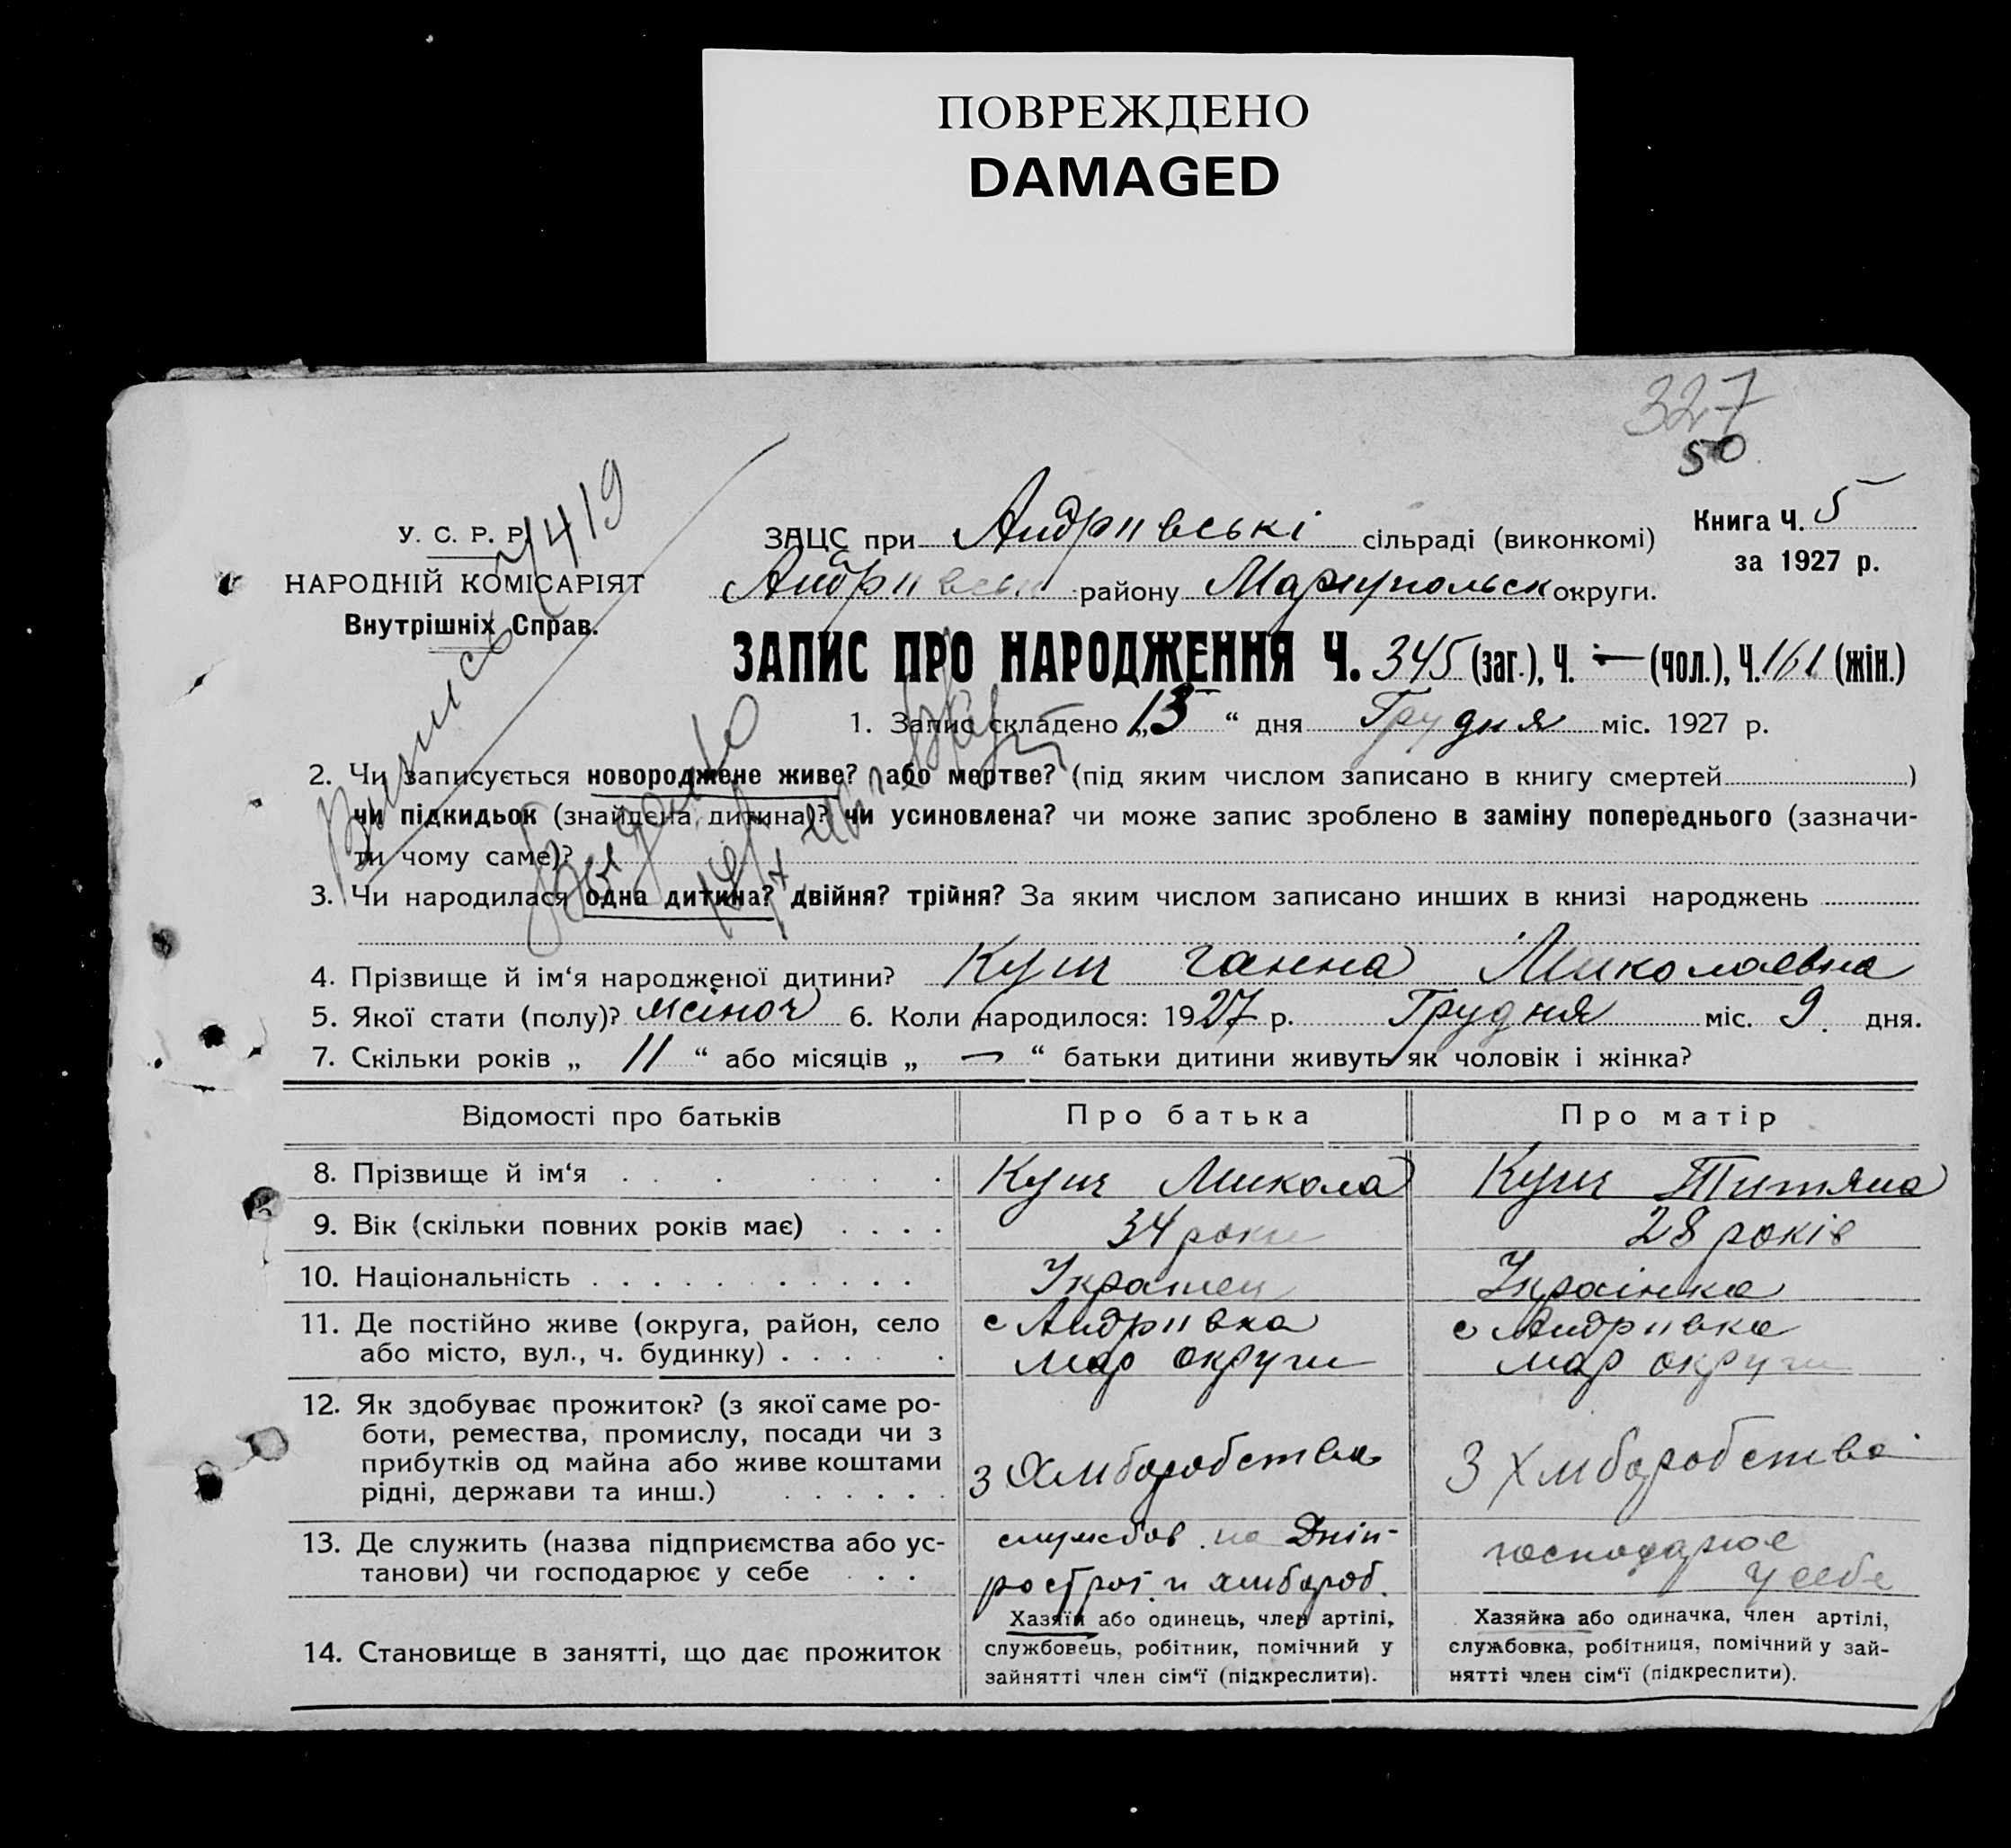 ПОВРЕЖДЕНО
DAMAGED
327
50
У. С. Р. Р.
НАРОДНІЙ КОМІСАРІЯТ
Внутрішніх Справ.
ЗАЦС при Андриівські сільраді (виконкомі)
Андриівськ району Мариупольск округи.
Книга Ч. 5
за 1927 р.
ЗАПИС ПРО НАРОДЖЕННЯ Ч. 345 (заг.), Ч. — (чол.), Ч. 161 (жін.)
1. Запис складено „15“ дня Грудня міс. 1927 р.
2. Чи записується новороджене живе? або мертве? (під яким числом записано в книгу смертей )
чи підкидьок (знайдена дитина)? чи усиновлена? чи може запис зроблено в заміну попереднього (зазначи-
ти чому саме)?
3. Чи народилася одна дитина? двійня? трійня? За яким числом записано инших в книзі народжень
4. Прізвище й ім‘я народженої дитини? Кущ Ганна Миколаевна
5. Якої стати (полу)? жіноч 6. Коли народилося: 1927 р. Грудня міс. 9 дня.
7. Скільки років „ 11 “ або місяців „ — “ батьки дитини живуть як чоловік і жінка?
Відомості про батьків Про батька Про матір
8. Прізвище й ім‘я Кущ Микола Кущ Титяна
9. Вік (скільки повних років має) 34 роки 28 років
10. Національність Украінец Украінка
11. Де постійно живе (округа, район, село с Андриівка с Андриівка
або місто, вул., ч. будинку) мар округи мар округи
12. Як здобуває прожиток? (з якої саме ро-
боти, ремества, промислу, посади чи з
прибутків од майна або живе коштами з Хлиборобства З Хлиборобства
рідні, держави та инш.)
13. Де служить (назва підприємства або ус- служсбов. на Дніп- господарюе
танови) чи господарює у себе рострої и хлибороб. у себе
14. Становище в занятті, що дає прожиток
Хазяїн або одинець, член артілі,
службовець, робітник, помічний у
зайнятті член сім‘ї (підкреслити).
Хазяйка або одиначка, член артілі,
службовка, робітниця, помічний у зай-
нятті член сім‘ї (підкреслити).
Выпись 7419